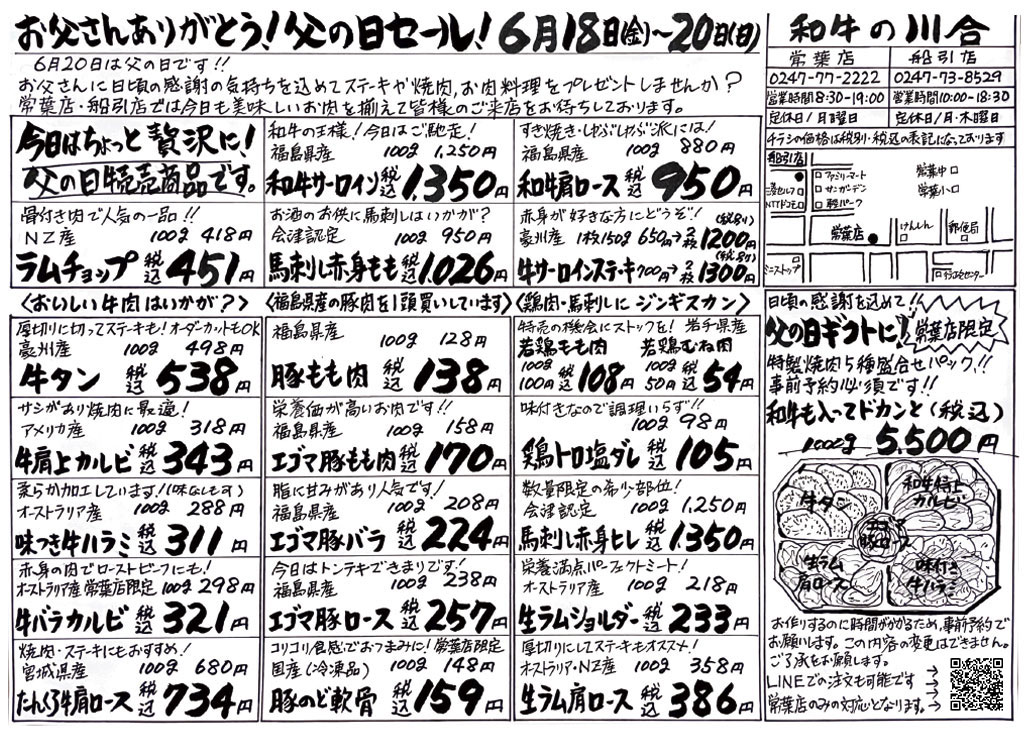 お父さんありがとう！父の日セール！6月18日(金)～20日(日)
6月20日は父の日です！！
お父さんに日頃の感謝の気持ちを込めてステーキや焼肉、お肉料理をプレゼントしませんか？
常葉店・船引店では今日も美味しいお肉を揃えて皆様のご来店をお待ちしております。
和牛の川合
常葉店 船引店
0247-77-2222 0247-73-8529
営業時間8:30-19:00 営業時間10:00-18:30
定休日/月曜日 定休日/月・木曜日
チラシの価格は税別・税込の表記になっております
船引店
ファミリーマート
サンガーデン
軽パーク
NTTドコモ
常葉中
常葉小
常葉店
けんしん
郵便局
ミニストップ
行政センター
今日はちょっと贅沢に！
父の日特売商品です。
和牛の王様！今日はご馳走！
福島県産 100g 1,250円
和牛サーロイン 税込 1,350円
すき焼き・しゃぶしゃぶ派には！
福島県産 100g 880円
和牛肩ロース 税込 950円
骨付き肉で人気の一品！！
NZ産 100g 418円
ラムチョップ 税込 451円
お酒のお供に馬刺しはいかが？
会津認定 100g 950円
馬刺し赤身もも 税込 1,026円
赤身が好きな方にどうぞ！ (税別)
豪州産 1枚150g 650円→2枚1200円
(税別)
牛サーロインステーキ 700円→2枚1300円
〈おいしい牛肉はいかが？〉
厚切りに切ってステーキも！オーダーカットもOK
豪州産 100g 498円
牛タン 税込 538円
サシがあり焼肉に最適！
アメリカ産 100g 318円
牛肩上カルビ 税込 343円
柔らか加工しています！(味なしも可)
オーストラリア産 100g 288円
味つき牛ハラミ 税込 311円
赤身の肉でローストビーフにも！
オーストラリア産 常葉店限定 100g 298円
牛バラカルビ 税込 321円
焼肉・ステーキにもおすすめ！
宮城県産 100g 680円
たんくろ牛肩ロース 税込 734円
〈福島県産の豚肉を1頭買いしています〉
福島県産 100g 128円
豚もも肉 税込 138円
栄養価が高いお肉です！！
福島県産 100g 158円
エゴマ豚もも肉 税込 170円
脂に甘みがあり人気です！
福島県産 100g 208円
エゴマ豚バラ 税込 224円
今日はトンテキできまりです！
福島県産 100g 238円
エゴマ豚ロース 税込 257円
コリコリ食感でおつまみに！常葉店限定
国産(冷凍品) 100g 148円
豚のど軟骨 税込 159円
〈鶏肉・馬刺しに ジンギスカン〉
特売の機会にストックを！ 岩手県産
若鶏もも肉 若鶏むね肉
100g 100円 税込 108円 100g 50円 税込 54円
味付きなので調理いらず！！
100g 98円
鶏トロ塩ダレ 税込 105円
数量限定の希少部位！
会津認定 100g 1,250円
馬刺し赤身ヒレ 税込 1,350円
栄養満点パーフェクトミート！
オーストラリア産 100g 218円
生ラムショルダー 税込 233円
厚切りにしてステーキもオススメ！
オーストラリア・NZ産 100g 358円
生ラム肩ロース 税込 386円
日頃の感謝を込めて！！
父の日ギフトに！ 常葉店限定
特製焼肉5種盛合せパック！！
事前予約必須です！！
和牛も入ってドカンと(税込)
1000g 5,500円
牛タン
和牛特上カルビ
エゴマ豚ロース
生ラム肩ロース
味付き牛ハラミ
お作りするのに時間がかかるため、事前予約で
お願いします。この内容の変更はできません。
ご了承をお願いします。
LINEでの注文も可能です →
常葉店のみの対応となります。→